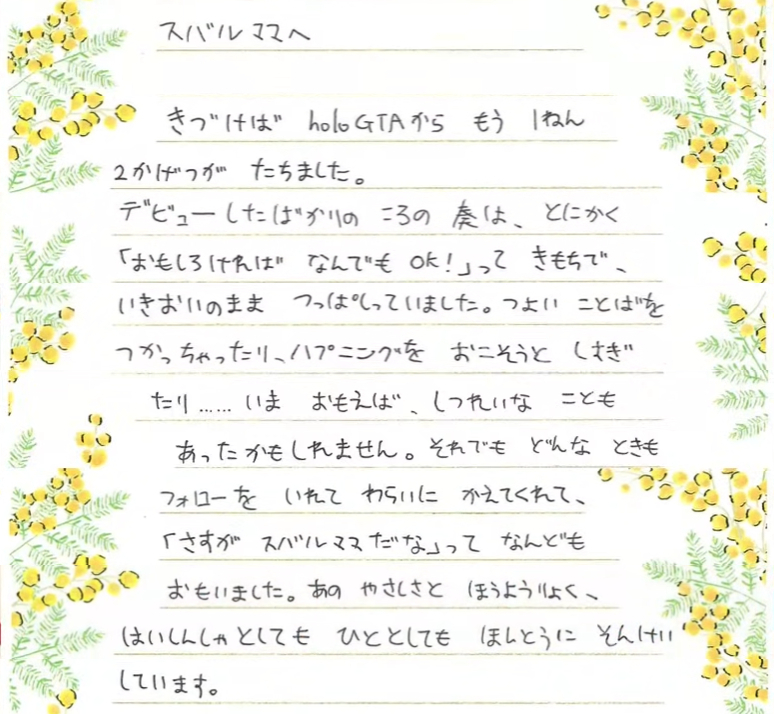 スバルママへ
きづけば holoGTAから もう 1ねん
2かげつが たちました。
デビューしたばかりの ころの 奏は、とにかく
「おもしろければ なんでも OK!」って きもちで、
いきおいのまま つっぱしっていました。つよい ことばを
つかっちゃったり、ハプニングを おこそうと しすぎ
たり……いま おもえば、しつれいな ことも
あったかもしれません。それでも どんな ときも
フォローを いれて わらいに かえてくれて、
「さすが スバルママだな」って なんども
おもいました。あの やさしさと ほうようりょく、
はいしんしゃとしても ひととしても ほんとうに そんけい
しています。